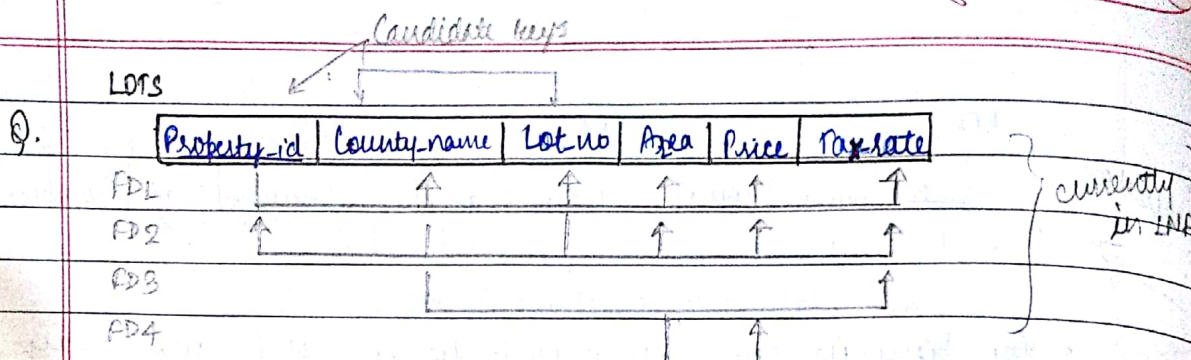 Candidate keys
LOTS
Q.
Property_id County_name Lot_no Area Price Tax_rate
FD1
FD2
FD3
FD4
currently
in 1NF